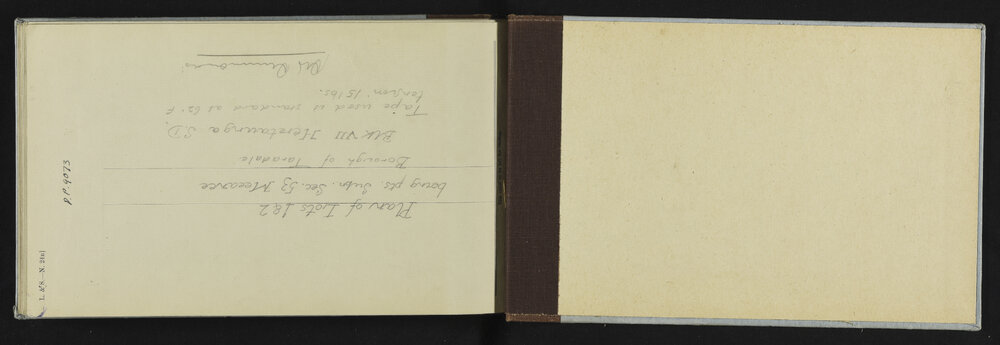 Plan of Lots 1 & 2
being pts. Subn. Sec. 53 Meeanee
Borough of Taradale
Blk VII Heretaunga S.D.
Tape used is standard at 62° F
tension 15 lbs.
D.P. 9073
L. & S.—N.